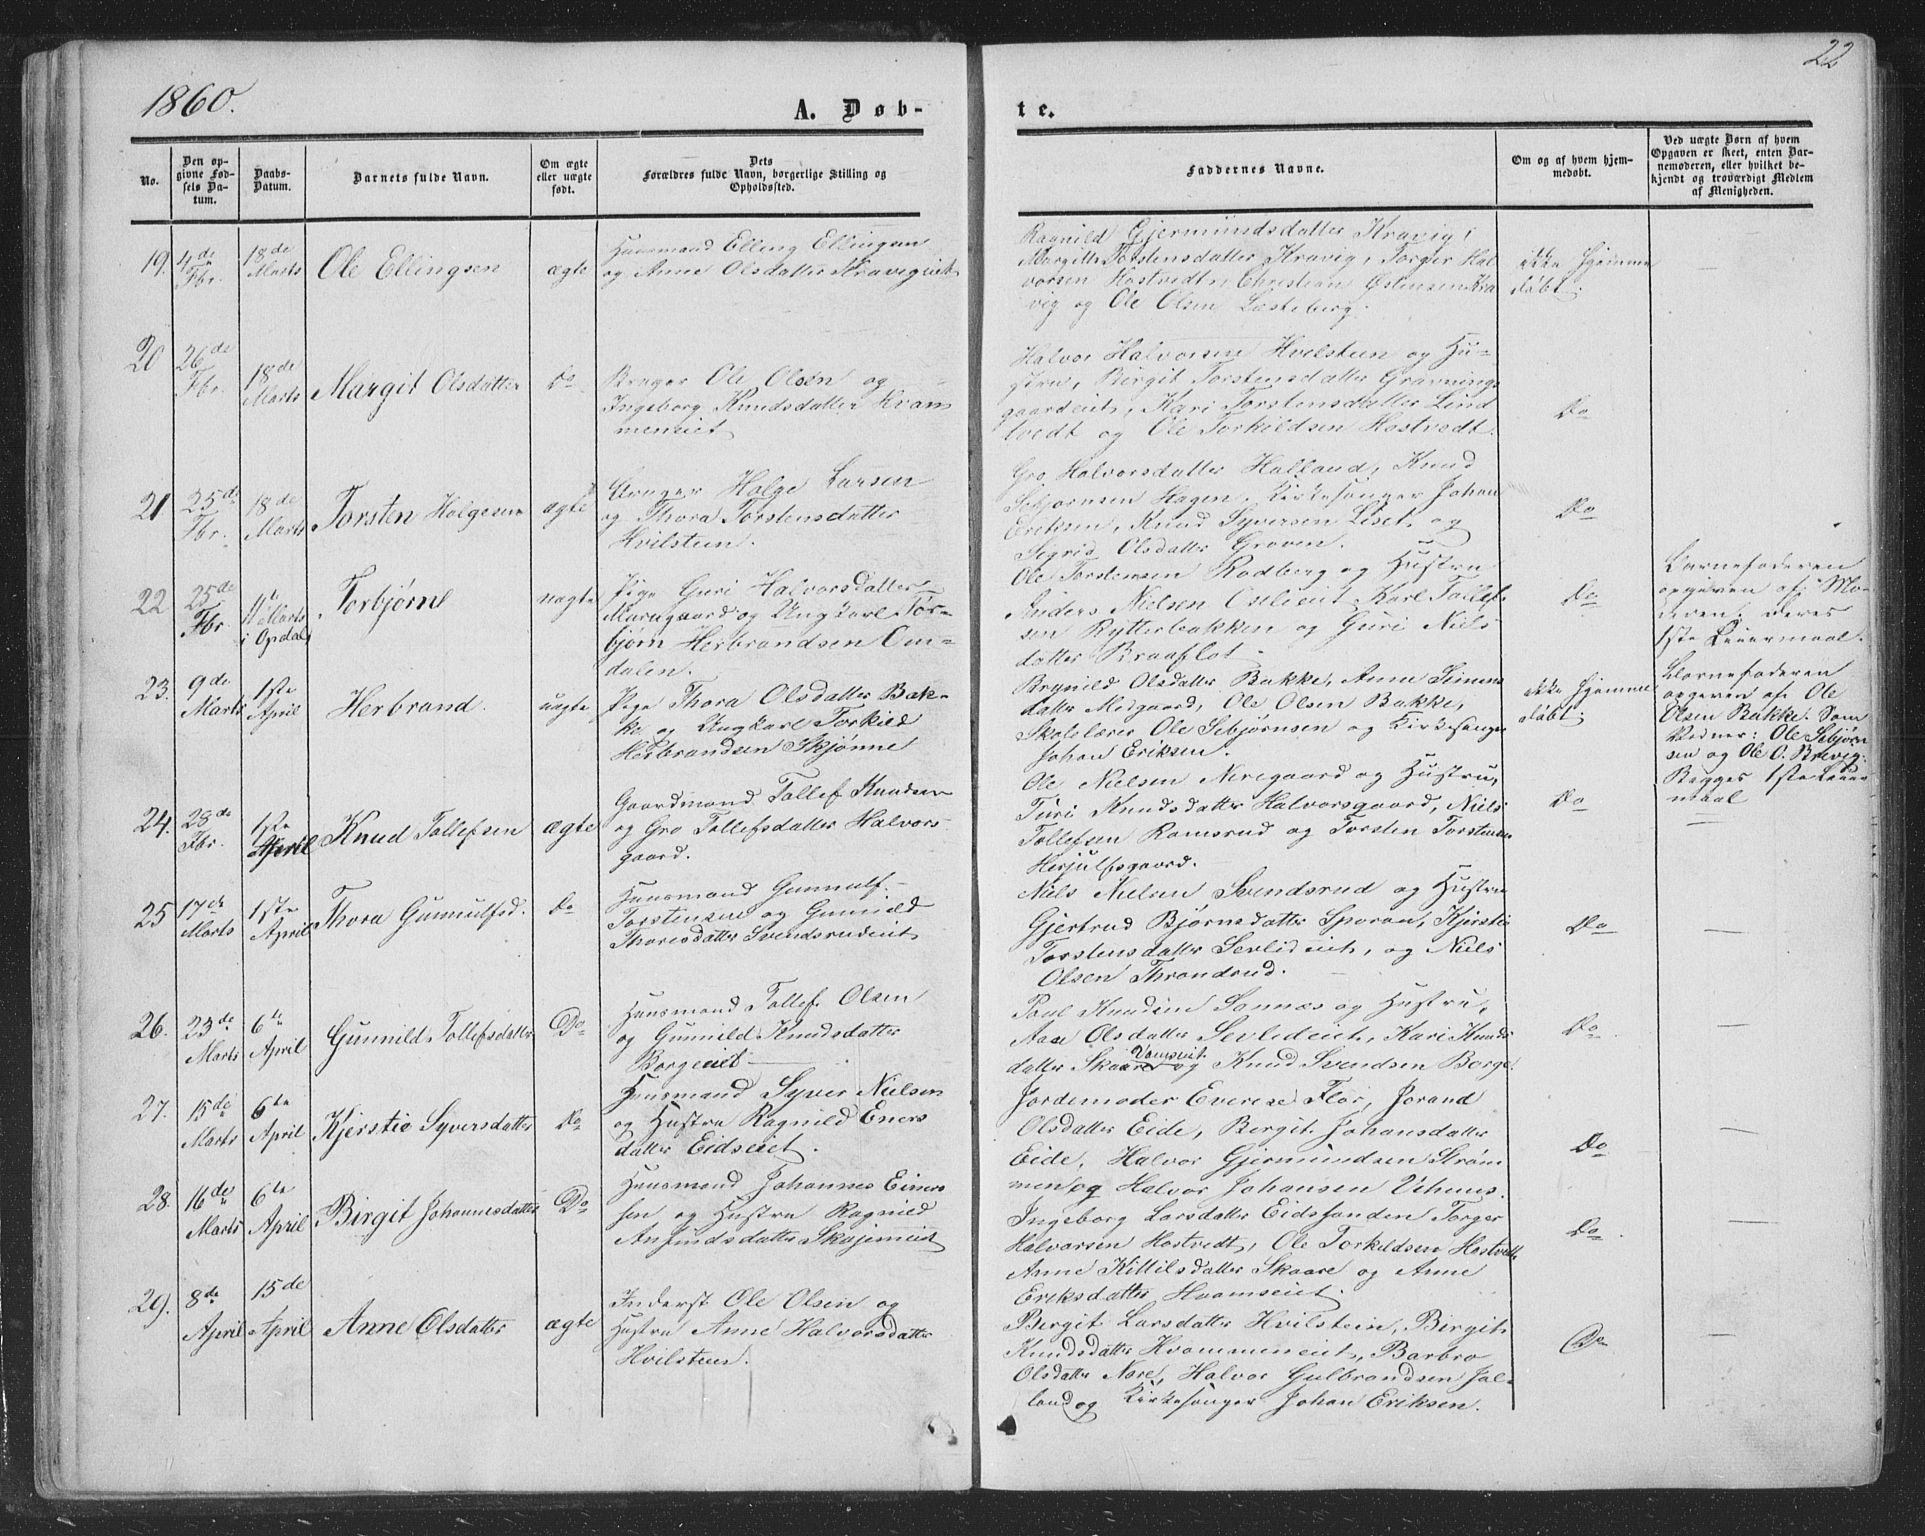 1860.
A. Døb-
te.
22
No.
Den op-
givne Fød-
sels Da-
tum.
Daabs-
Datum.
Barnets fulde Navn.
Om ægte
eller uægte
født.
Dets
Forældres fulde Navn, borgerlige Stilling og
Opholdssted.
Faddernes Navne.
Om og af hvem hjem-
medøbt.
Ved uægte Børn af hvem
Opgaven er skeet, enten Bar-
nemoderen, eller hvilket be-
kjendt og troværdigt Medlem
af Menigheden.
19. 4de Fbr. 18de Marts Ole Ellingsen ægte
Huusmand Elling Ellingsen
og Anne Olsdatter Kravigeiet
Ragnild Gjermundsdatter Kravig,
Margitte Torstensdatter Kravig, Torger Hal
vorsen Hostvedt, Christian Østensen Kra
vig og Ole Olsen Lasteberg.
ikke hjemme
døbt.
20 26de Fbr. 18de Marts Margit Olsdatter Do
Bruger Ole Olsen og
Ingeborg Knudsdatter Kvam
meneiet
Halvor Halvorsen Hvilstein og Hu-
stru, Birgit Torstensdatter Gravnings
gaardeiet, Kari Torstensdatter Lind
tvedt og Ole Torkildsen Hostvedt.
Do
21 25de Fbr. 18de Marts Torsten Holgesen ægte
Bruger Holge Larsen
og Thora Torstensdatter
Hvilstein.
Gro Halvorsdatter Halland, Knud
Sebjørnsen Hagen, Kirkesanger Johan
Eriksen, Knud Syversen Liset, og
Sigrid Olsdatter Groven.
Do
22 25de Fbr. 11te Marts i Opdal Torbjørn uægte
Pige Guri Halvorsdatter
Murugaard og Ungkarl Tor-
bjørn Herbrandsen Om-
dalen.
Ole Torstensen Rodberg og Hustru
Anders Nielsen Oslieiet, Karl Tollef
sen Rytterbakken og Guri Niels
datter Braaflot
Do
Barnefaderen
opgiven af Mo-
deren, deres
1ste Leiermaal.
23. 9de Marts 1ste April Herbrand. uægte
Pige Thora Olsdatter Bak-
ke og Ungkarl Torkild
Herbrandsen Skjønne
Brynild Olsdatter Bakke, Anne Simens
datter Modgaard, Ole Olsen Bakke,
Skolelærer Ole Sebjørnsen og Kirkesanger
Johan Eriksen.
ikke hjemme
døbt.
Barnefaderen
opgiven af Ole
Olsen Bakke. Som
Vidner: Ole Sebjørn
sen og Ole O. Brevig.
Begges 1ste Leier
maal
24. 28de Fbr. 1ste April Knud Tollefsen ægte
Gaardmand Tollef Knudsen
og Gro Tollefsdatter Halvors
gaard.
Ole Nielsen Neregaard og Hustru,
Turi Knudsdatter Halvorsgaard, Niels
Tollefsen Ramsrud og Torsten Torstensen
Herjulfsgaard.
Do
25 17de Marts 1ste April Thora Gunnulfsd. Do
Huusmand Gunnulf
Torstensen og Gunild
Thoresdatter Svendsrudeiet
Niels Nielsen Svendsrud og Hustru
Gjertrud Bjørnsdatter Sporan, Kjersti
Torstensdatter Sevlideiet, og Niels
Olsen Thrandrud.
Do
26. 23de Marts 6te April Gunnild Tollefsdatter Do
Huusmand Tollef Olsen
og Gunnild Knudsdatter
Borgeeiet
Paul Knudsen Sonnæs og Hustru,
Aase Olsdatter Sevledeiet, Kari Knuds
datter Skaare og Knud Svendsen Borge.
Do
27. 15de Marts 6te April Kjerstie Syversdatter Do
Huusmand Syver Nielsen
og Hustru Ragnild Eners
datter Eidseiet.
Jordemoder Everese Flor, Jorand
Olsdatter Eide, Bergit Johansdatter
Eide, Halvor Gjermundsen Strøm
men og Halvor Johansen Vehuus.
Do
28. 16de Marts 6te April Birgit Johannesdatter Do
Huusmand Johannes Einers
sen og Hustru Ragnild
Anfindsdatter Skajemeiet
Ingeborg Larsdatter Eidssanden Torger
Halvorsen Hostvedt, Ole Torkildsen Hostvedt
Anne Kittilsdatter Skaare og Anne
Eriksdatter Hvamseiet.
Do
29. 8de April 15de April Anne Olsdatter ægte
Inderst Ole Olsen og
Hustru Anne Halvorsdatter
Hvilstein.
Bergit Larsdatter Hvilstein, Birgit
Knudsdatter Kvammeneiet, Barbro
Olsdatter Nore, Halvor Gulbrandsen Jal-
land og Kirkesanger Johan Eriksen.
Do